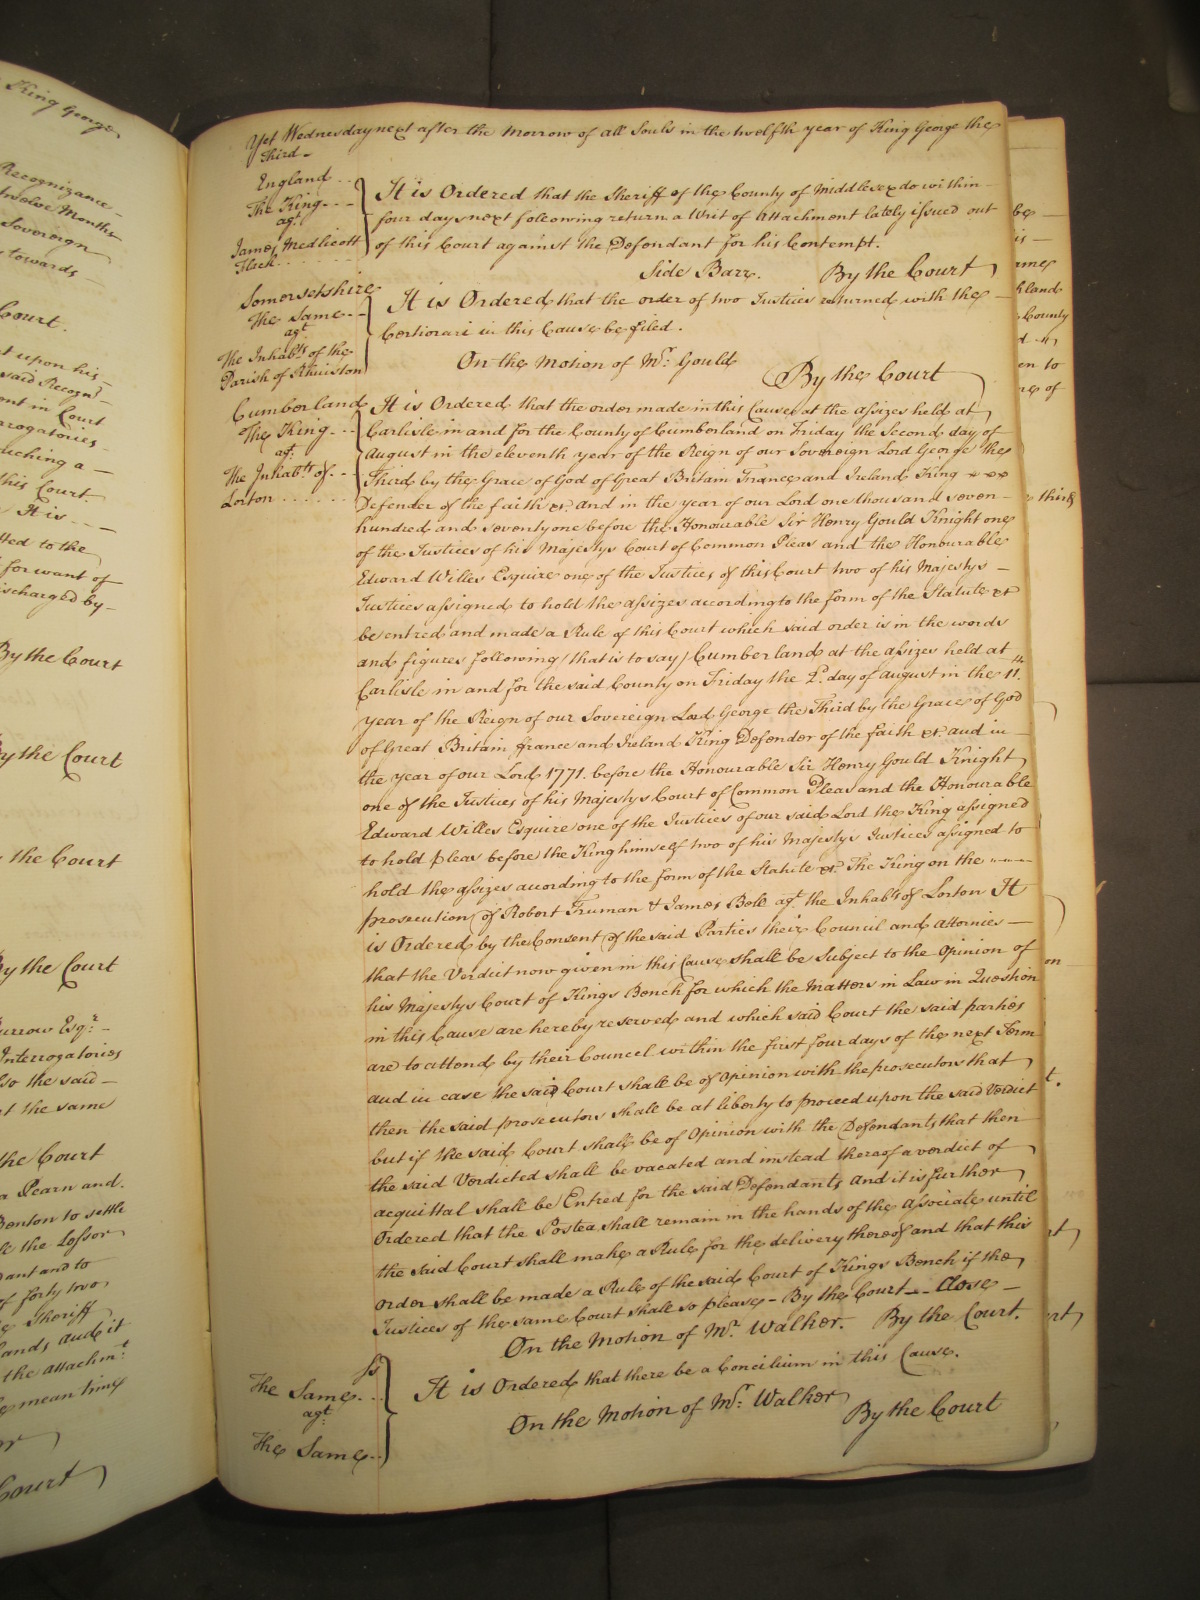 King George
Recognizance
twelve Months
Sovereign
towards
Court.
upon his
said Recogn
ent in Court
errogatories
ouching a
this Court
It is
tted to the
for want of
ischarged by
By the Court
By the Court
the Court
By the Court
Burrow Esqr.
Interrogatories
so the said
the same
the Court
a Pearn and
Benton to settle
the Lessor
dant and to
of forty two
Sheriff
Lands and it
the attachmt.
mean time
Court
Yet Wednesday next after the Morrow of all Souls in the twelfth year of King George the
Third
England
The King
agt.
James Medlicott
Flick
It is Ordered that the Sheriff of the County of Middlesex do within
four days next following return a Writ of Attachment lately issued out
of this Court against the Defendant for his Contempt.
Side Barr. By the Court
Somersetshire
The Same
agt
The Inhabts of the
Parish of Rhuiston
It is Ordered that the order of two Justices returned with the
Certiorari in this Cause be filed.
On the Motion of Mr. Gould
By the Court
Cumberland
The King
agt.
The Inhabts of
Lorton
It is Ordered that the order made in this Cause at the assizes held at
Carlisle in and for the County of Cumberland on Friday the Second day of
August in the eleventh year of the Reign of our Sovereign Lord George the
Third by the Grace of God of Great Britain France and Ireland King
Defender of the faith &c. and in the year of our Lord one thousand seven
hundred and seventy one before the Honourable Sir Henry Gould Knight one
of the Justices of his Majestys Court of Common Pleas and the Honourable
Edward Willes Esquire one of the Justices of this Court two of his Majestys
Justices assigned to hold the assizes according to the form of the Statute &c
be entred and made a Rule of this Court which said order is in the words
and figures following (that is to say) Cumberland at the assizes held at
Carlisle in and for the said County on Friday the 2d. day of August in the 11th.
year of the Reign of our Sovereign Lord George the Third by the Grace of God
of Great Britain France and Ireland King Defender of the faith &c. and in
the year of our Lord 1771. before the Honourable Sir Henry Gould Knight
one of the Justices of his Majestys Court of Common Pleas and the Honourable
Edward Willes Esquire one of the Justices of our said Lord the King assigned
to hold pleas before the King himself two of his Majestys Justices assigned to
hold the assizes according to the form of the Statute &c. The King on the
prosecution of Robert Truman & James Bell agt. the Inhabts of Lorton It
is Ordered by the Consent of the said Parties their Council and Attornies
that the Verdict now given in this Cause shall be Subject to the Opinion of
his Majestys Court of Kings Bench for which the Matters in Law in Question
in this Cause are hereby reserved and which said Court the said parties
are to attend by their Councel within the first four days of the next Term
and in case the said Court shall be of Opinion with the prosecutors that
then the said prosecutors shall be at liberty to proceed upon the said Verdict
but if the said Court shall be of Opinion with the Defendants that then
the said Verdicted shall be vacated and instead thereof a verdict of
acquittal shall be Entred for the said Defendants and it is further
Ordered that the Postea shall remain in the hands of the Associate until
the said Court shall make a Rule for the delivery thereof and that this
order shall be made a Rule of the said Court of Kings Bench if the
Justices of the same Court shall so please - By the Court - Close
On the Motion of Mr. Walker. By the Court.
The Same
agt.
The Same
It is Ordered that there be a Concilium in this Cause.
On the Motion of Mr. Walker
By the Court